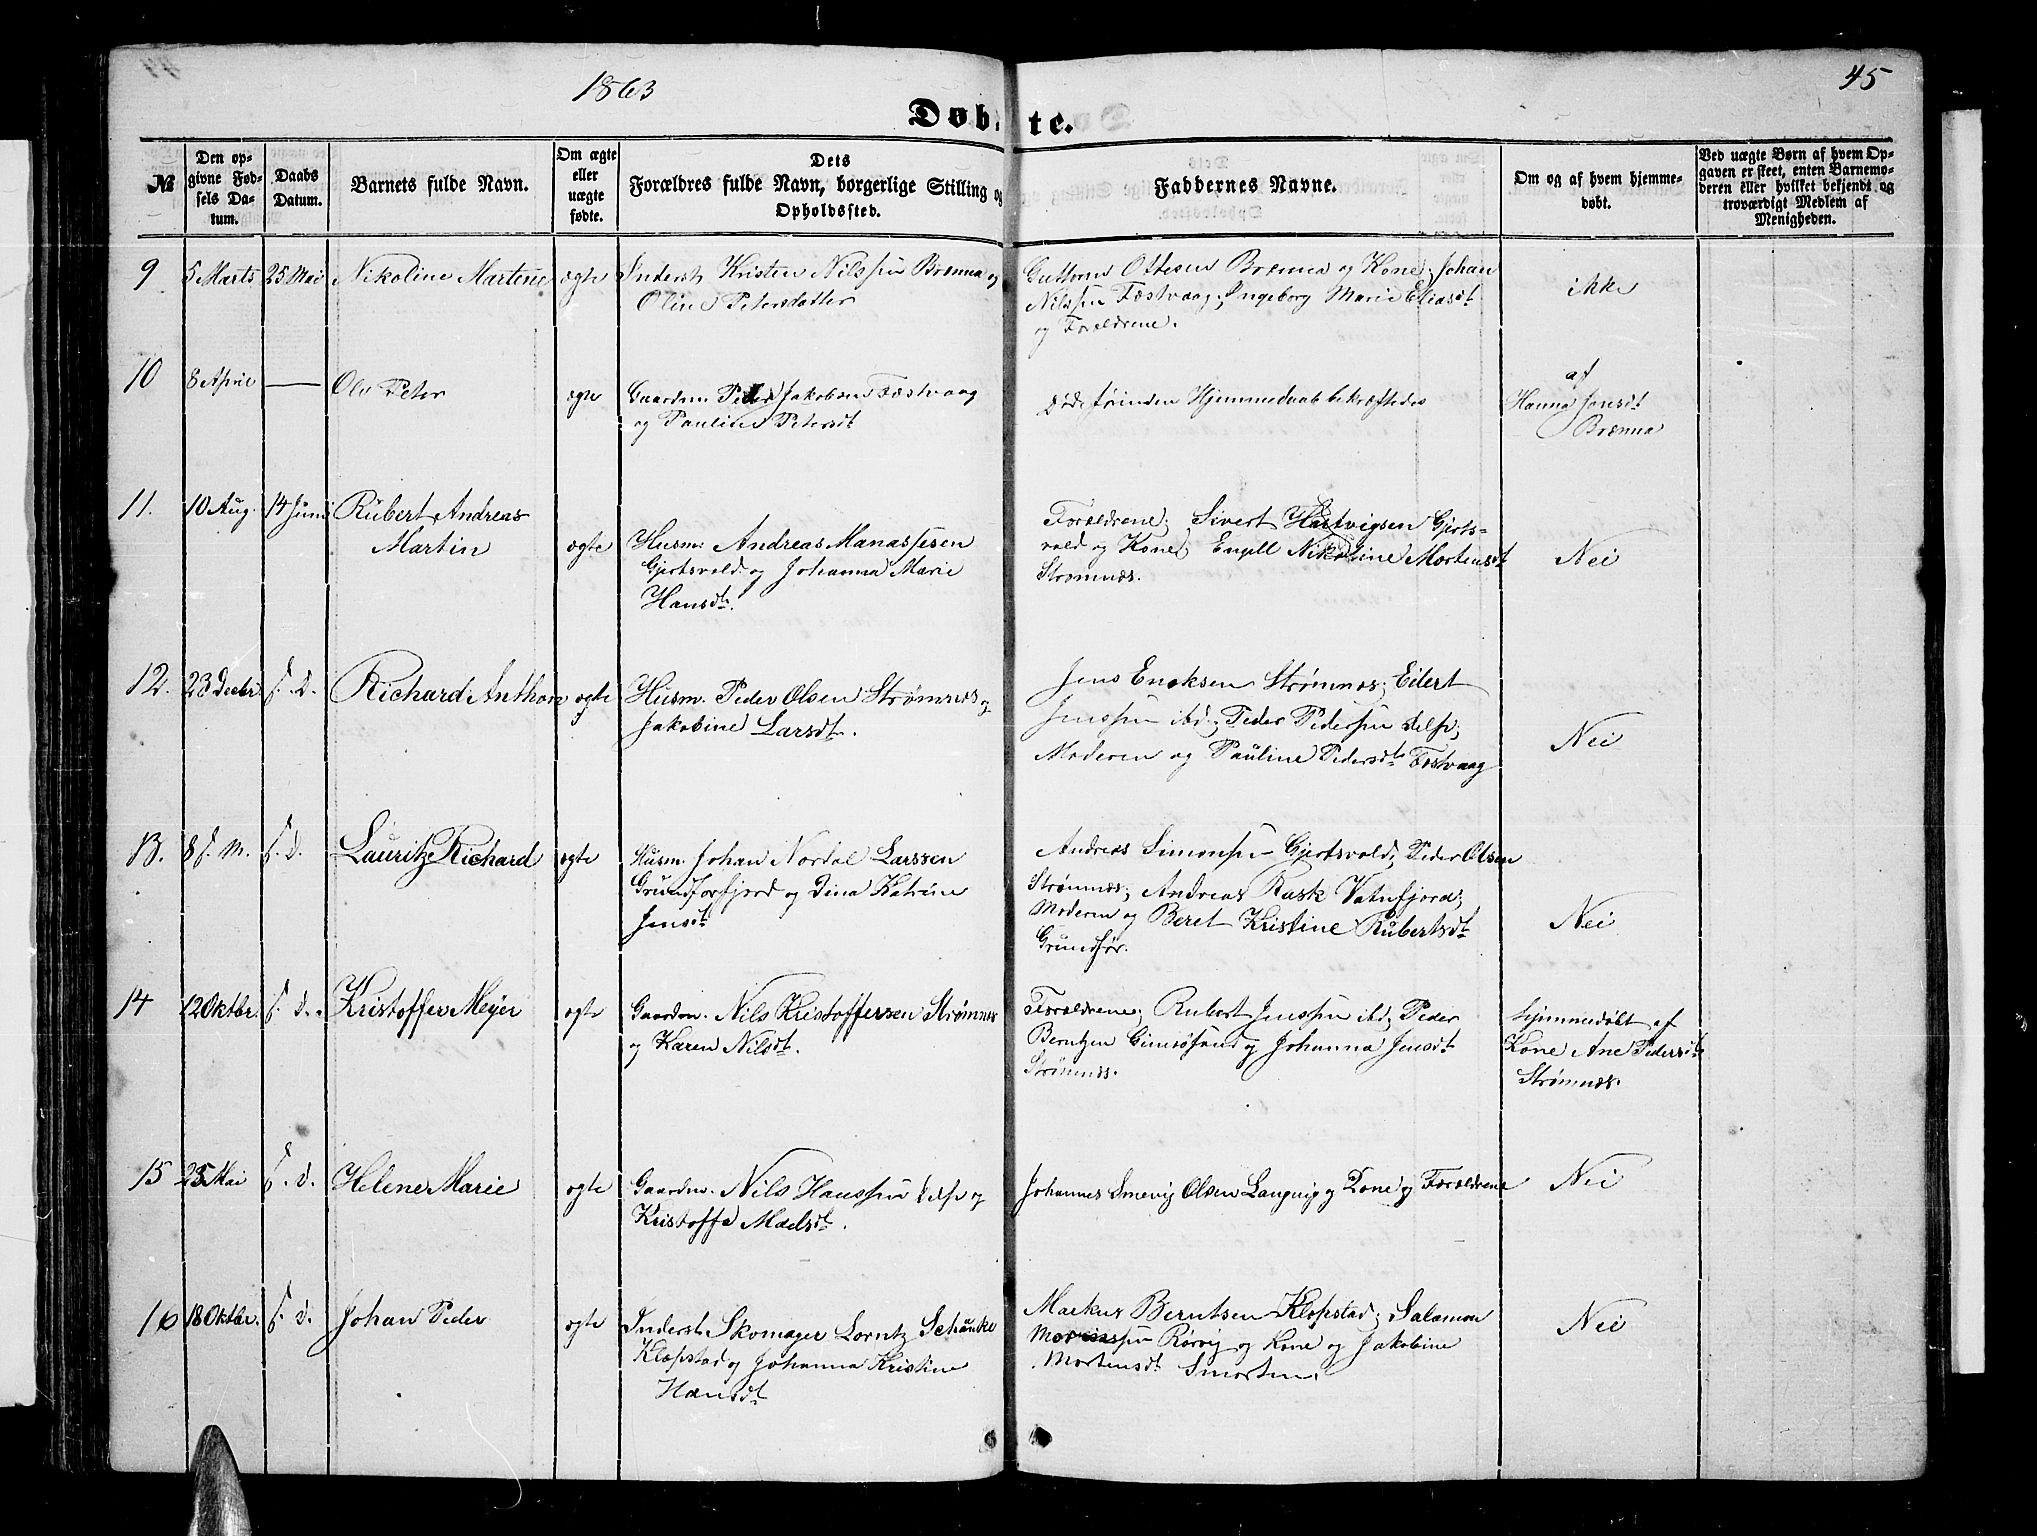 1863
45
Døbte.
№
Den op-
givne Fød-
sels Da-
tum.
Daabs
Datum.
Barnets fulde Navn.
Om ægte
eller
uægte
fødte.
Dets
Forældres fulde Navn, borgerlige Stilling og
Opholdssted.
Faddernes Navne.
Om og af hvem hjemme-
døbt.
Ved uægte Børn af hvem Op-
gaven er skeet, enten Barnemo-
deren eller hvilket bekjendt og
troværdigt Medlem af
Menigheden.
9 5 Marts 25 Mai Nikoline Martine ægte
Inderst Kristen Nilssen Brenna og
Oline Petersdatter
Guttorm Ottesen Brenna og Kone; Johan
Nilssen Festvaag; Ingeborg Marie Eliasdt
og Forældrene.
ikke
10 8 April — Ole Peter ægte
Gaardm. Peder Jakobsen Festvaag
og Pauline Petersdt
Død forinden Hjemmedaab bekræftedes
af
Hanna Jonsdt
Brenna
11. 10 Aug. 14 Juni Rubert Andreas
Martin ægte
Husm: Andreas Manassesen
Gjertsvold og Johanna Marie
Hansdt.
Forældrene; Sivert Hartvigsen Gjerts-
vold og Kone; Engell Nikoline Mortensdt
Strømnæs.
Nei
12. 23 Decbr s. D. Richard Anthon ægte
Husm. Peder Olsen Strømnes og
Jakobine Larsdt.
Jens Enoksen Strømnes; Eilert
Jenssen ibd; Peder Pederssen delsr;
Moderen og Pauline Pedersdt Festvaag
Nei
13. 8 s. M. s. d. Lauritz Richard ægte
Husm. Johan Nordal Larssen
Grundforfjord og Dina Katrine
Jensdt
Andreas Simonsen Gjertsvold; Peder Olsen
Strømnes; Andreas Rask Vatnfjord;
Moderen og Beret Kristine Rubertsdt
Grundfør.
Nei
14 12 Oktbr. s. d. Kristoffer Meyer ægte
Gaardm. Nils Kristoffersen Strømnes
og Karen Nilsdt.
Forældrene; Rubert Jenssen ibd; Peder
Berntzen Gimsøsand og Johanna Jensdt
Strømnes.
Hjemmedøbt af
Kone Ane Pedersdt
Strømnæs.
15 25 Mai s. d. Helene Marie ægte
Gaardm. Nils Hanssen delsr og
Kristoffa Madsdt.
Johannes Smevig Olsen Langvig og Kone og Forældrene
Nei
16 18 Oktbr. s. d. Johan Peder ægte
Inderst Skomager Lorntz Schanke
Klopstad og Johanna Kristine
Hansdt
Markus Berntsen Klopstad; Salamon
Rørvig og Kone og Jakobine
Mortensdt Smorten.
Nei